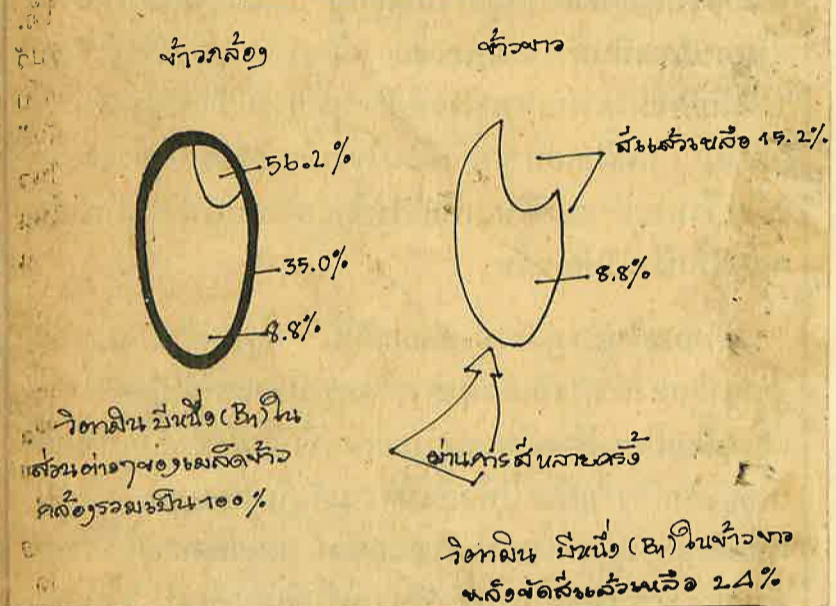 ข้าวกล้อง
56.2%
35.0%
8.8%
วิตามิน บีหนึ่ง (B1) ใน
ส่วนต่างๆของเมล็ดข้าว
กล้องรวมเป็น 100%
ข้าวขาว
สีแล้วเหลือ 15.2%
8.8%
ผ่านการสีหลายครั้ง
วิตามิน บีหนึ่ง (B1) ในข้าวขาว
หลังขัดสีแล้วเหลือ 24%